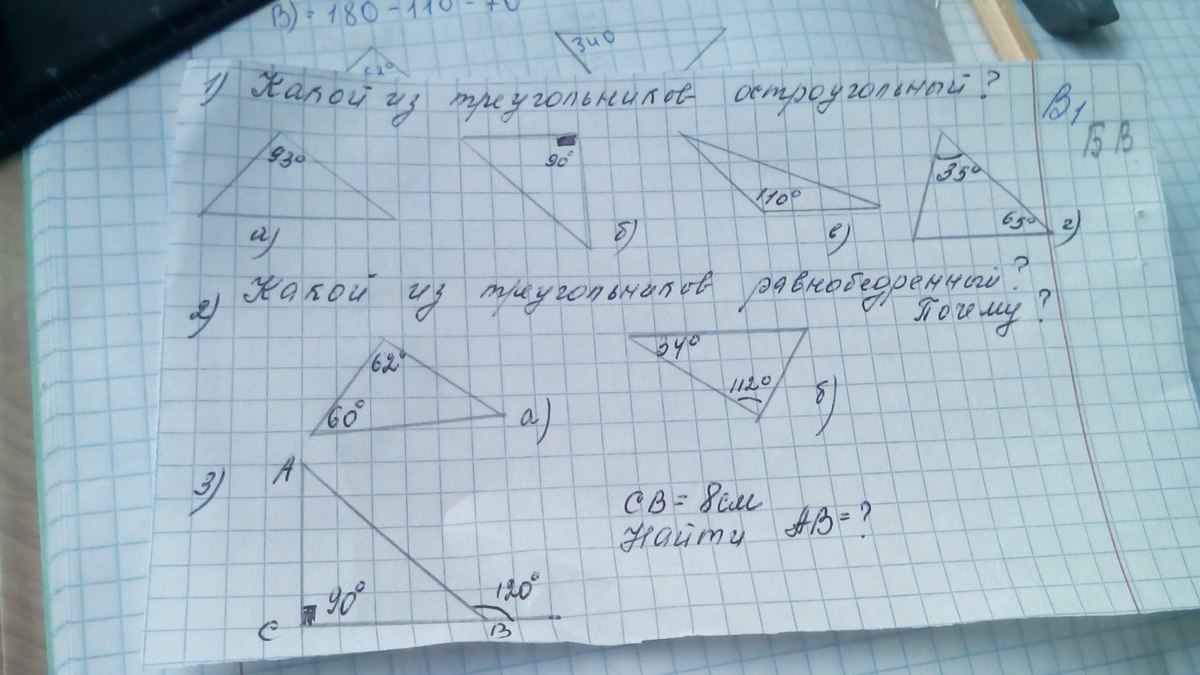 В) = 180 - 110 = 70
62°
34°
1) Какой из треугольников остроугольный?
В1
Б В
93°
90°
110°
35°
65°
а)
б)
в)
г)
2) Какой из треугольников равнобедренный?
Почему?
62°
60°
а)
34°
112°
б)
3)
А
90°
С
120°
В
СВ = 8см
Найти АВ = ?